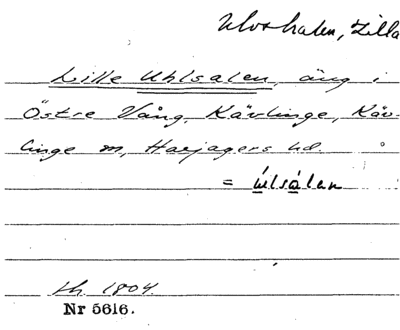 Ulvshalen, Lilla
Lille Uhlsalen, äng i
Östre Vång, Kävlinge, Käv-
linge sn, Harjagers hd.
= úlsálen
sk. 1804.
Nr 5616.